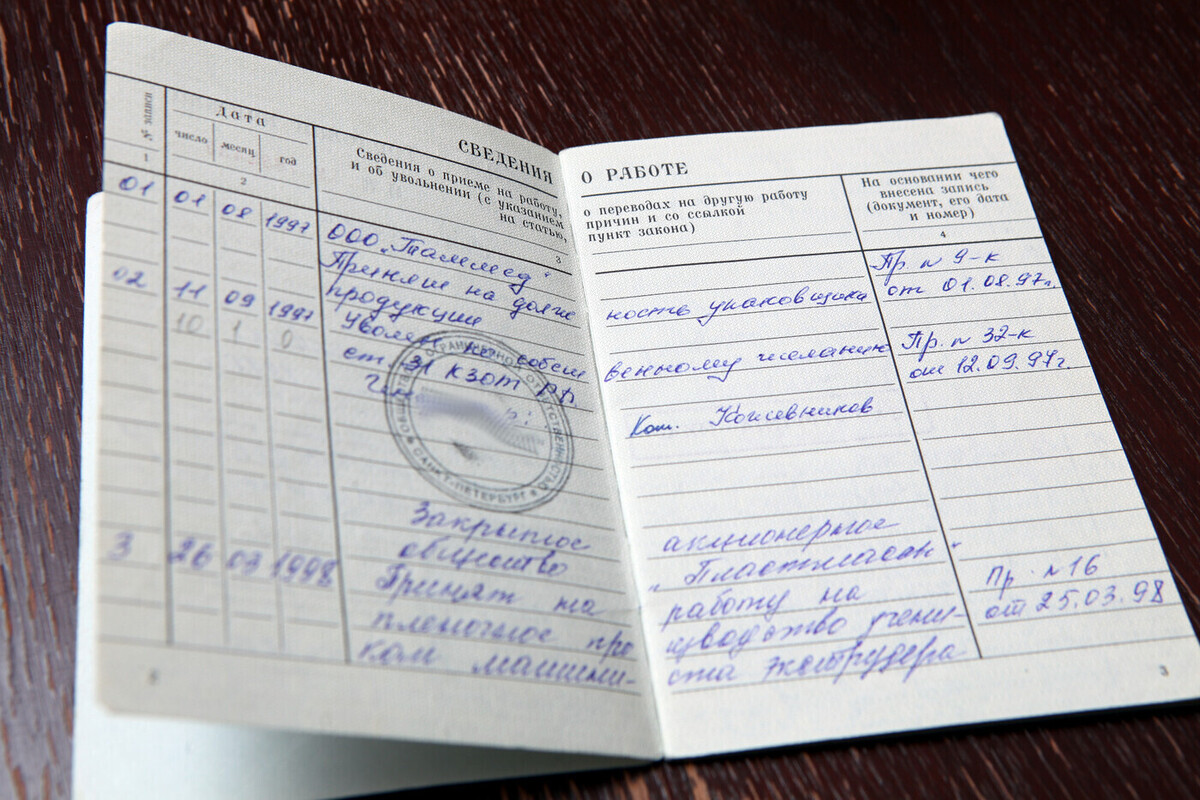 СВЕДЕНИЯ О РАБОТЕ
№ записи
Дата
число месяц год
Сведения о приеме на работу, о переводах на другую работу
и об увольнении (с указанием причин и со ссылкой
на статью, пункт закона)
На основании чего
внесена запись
(документ, его дата
и номер)
1 2 3 4
01 01 08 1997 ООО „Таммед“
Принят на долж ность упаковщика Пр. № 9-к
продукции от 01.08.97г.
02 11 09 1997 Уволен по собст венному желанию Пр. № 32-к
ст 31 КЗОТ РФ от 12.09.97г.
10 1 0
Кожевников
ОБЩЕСТВО С ОГРАНИЧЕННОЙ ОТВЕТСТВЕННОСТЬЮ
САНКТ-ПЕТЕРБУРГ
Закрытое акционерное
общество
3 26 03 1998 Принят на работу на Пр. №16
пленочное про изводство учени- от 25.03.98
ком машини- ста экструдера
3